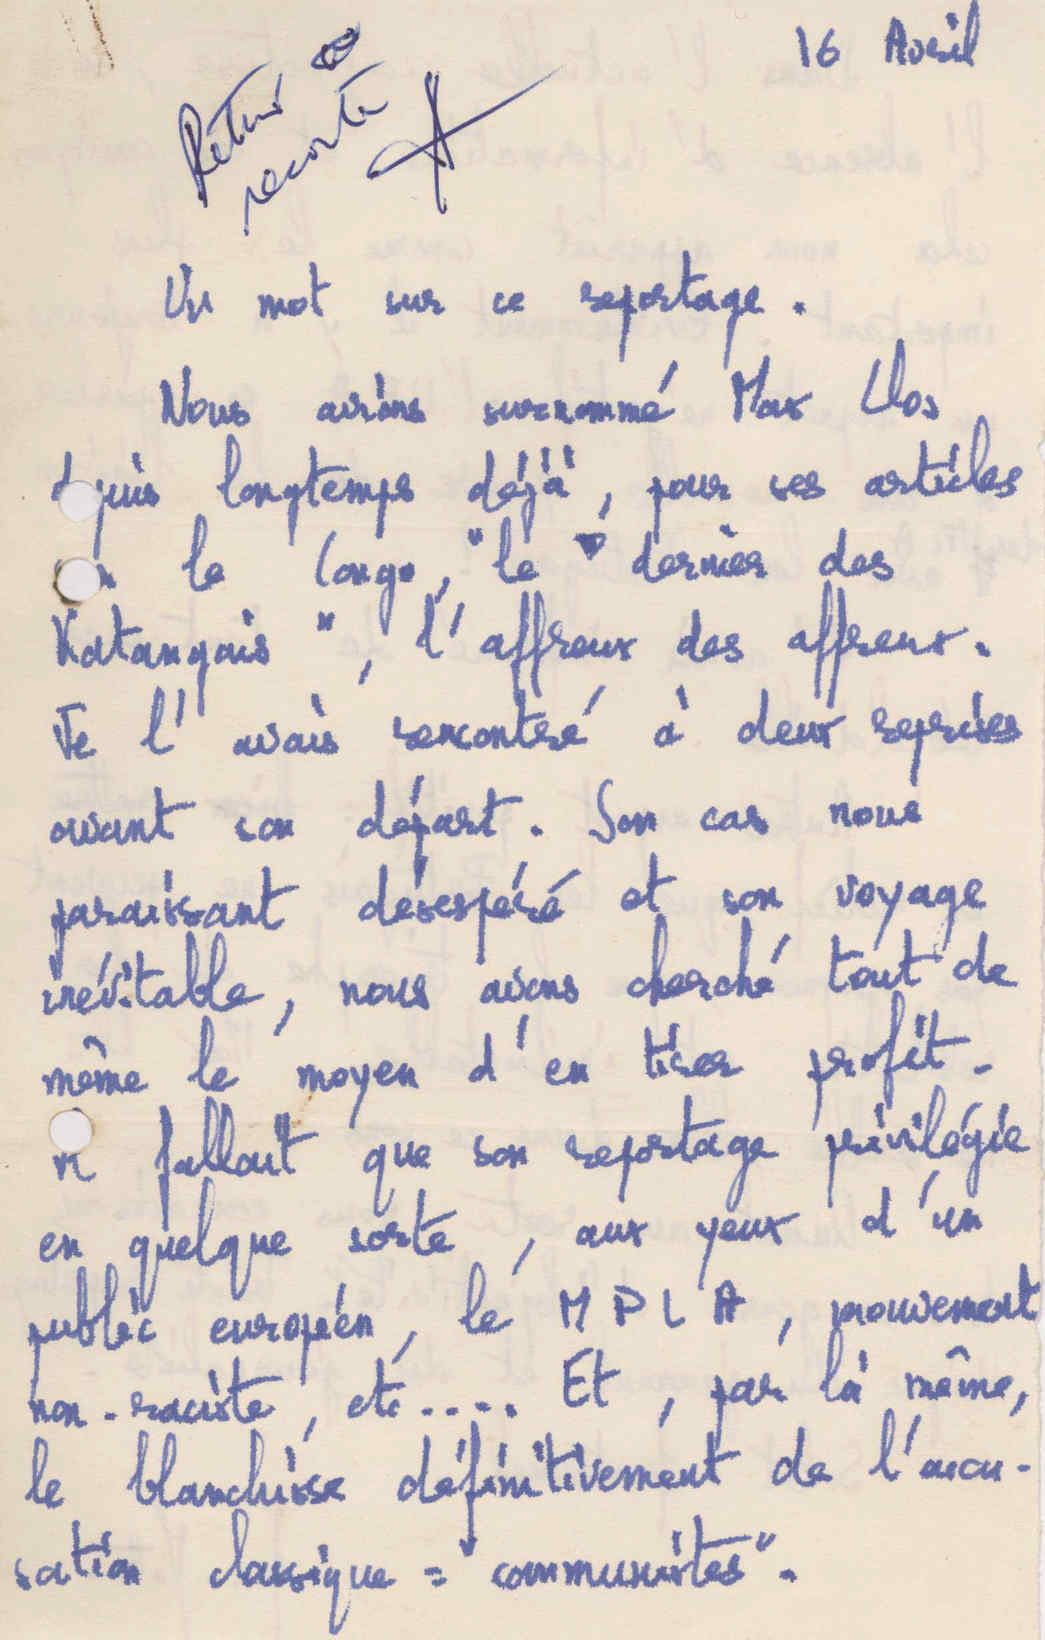 16 Avril
Retirar o
recorte
Un mot sur ce reportage.
Nous avions surnommé Max Clos
depuis longtemps déjà, pour ses articles
le Congo, "le dernier des
Katangais", l'affreux des affreux.
Je l'avais rencontré à deux reprises
avant son départ. Son cas nous
paraissant désespéré et son voyage
inévitable, nous avons cherché tout de
même le moyen d'en tirer profit.
Il fallait que son reportage privilégie
en quelque sorte, aux yeux d'un
public européen, le MPLA, mouvement
non-raciste, etc.... Et, par là même,
le blanchisse définitivement de l'accu-
sation classique = "communistes".